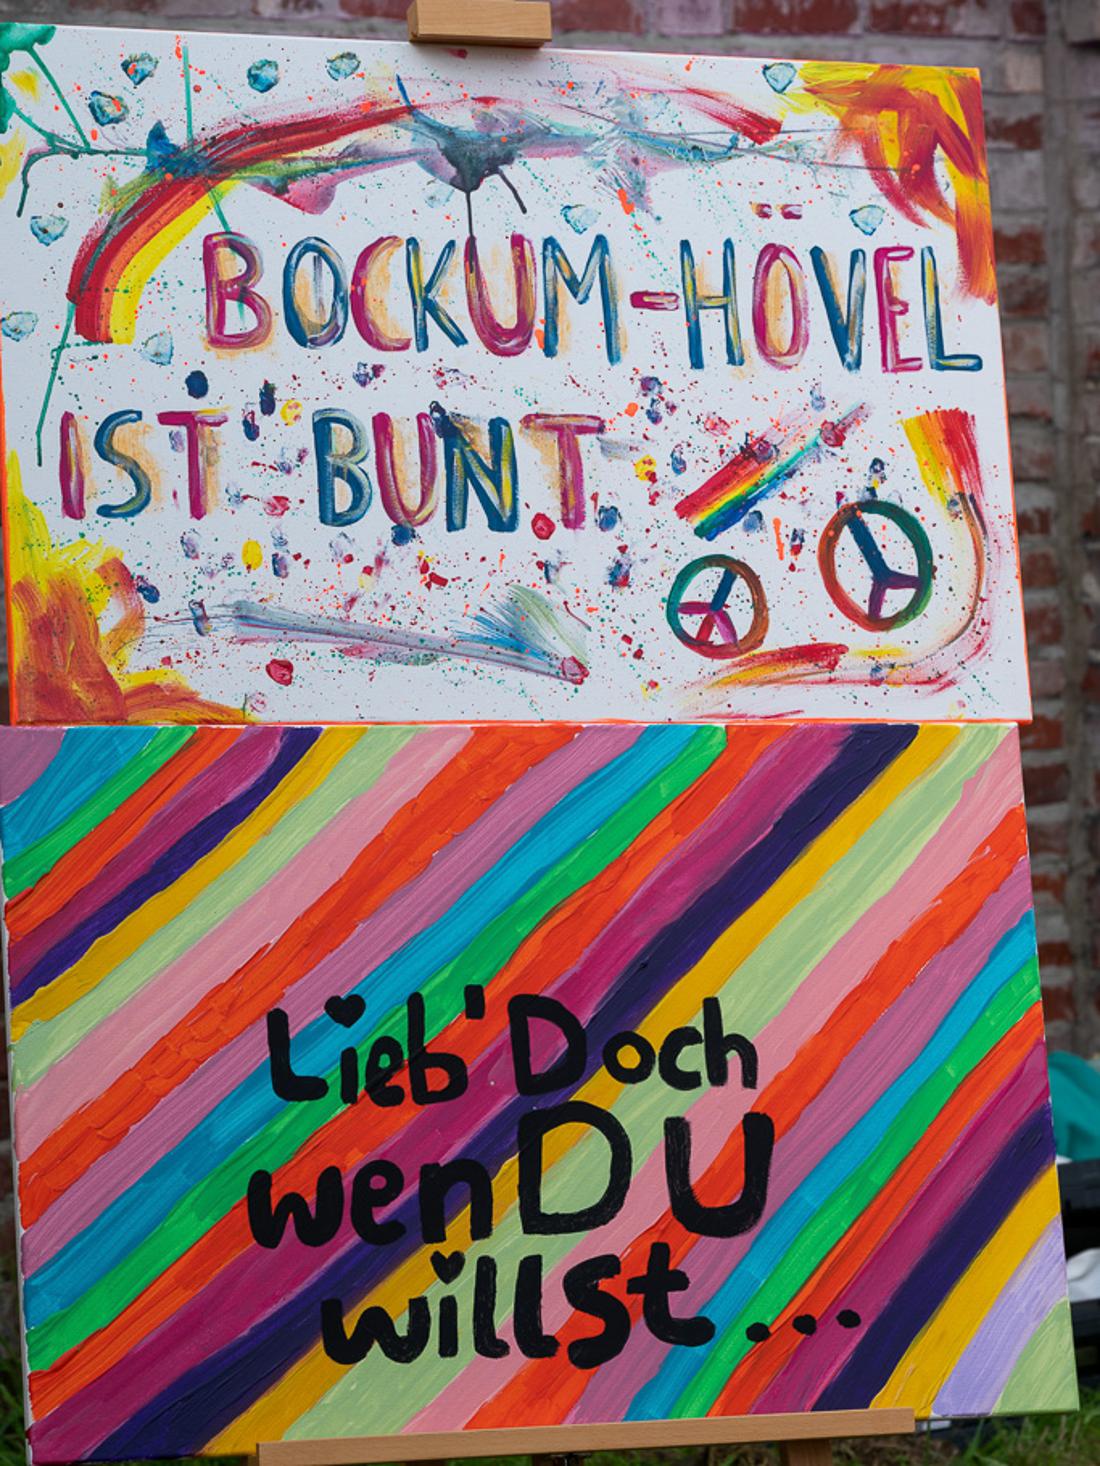 BOCKUM-HÖVEL
IST BUNT
Lieb' Doch
wen DU
willst...